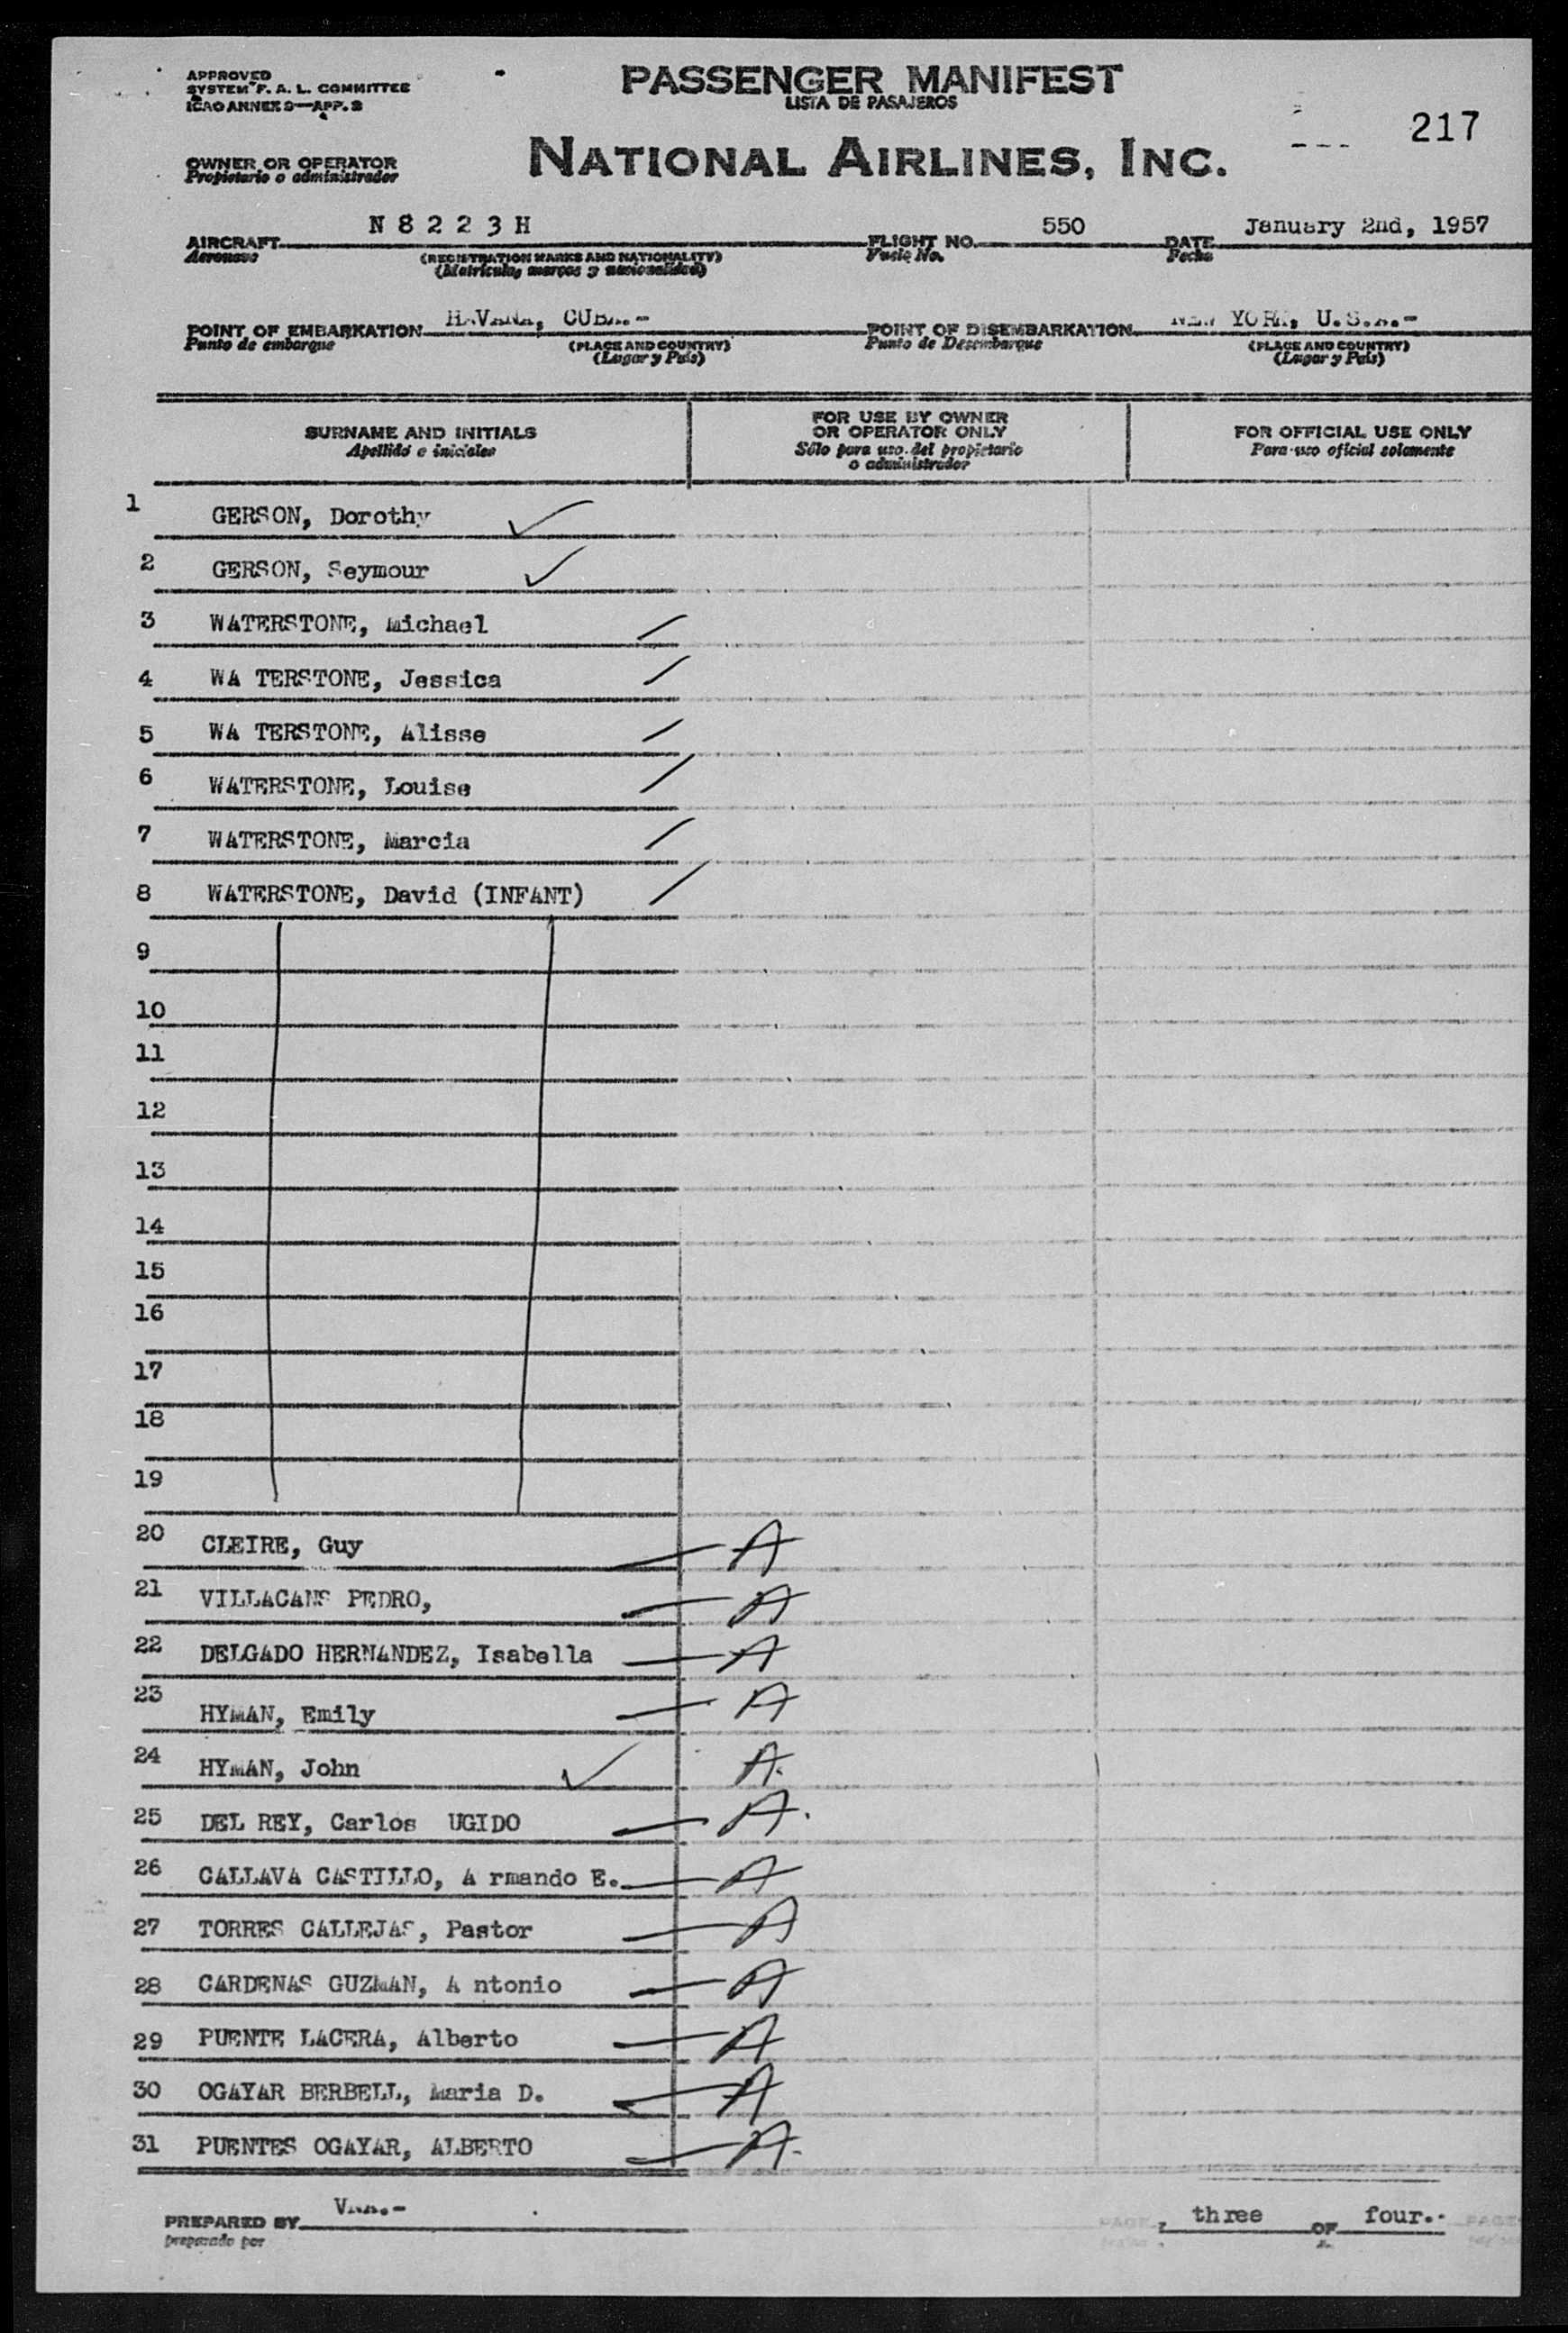 APPROVED
SYSTEM F. A. L. COMMITTEE
ICAO ANNEX 9—APP. 3
PASSENGER MANIFEST
LISTA DE PASAJEROS
217
OWNER OR OPERATOR
Propietario o administrador
NATIONAL AIRLINES, INC.
AIRCRAFT N 8 2 2 3 H FLIGHT NO. 550 DATE January 2nd, 1957
Aeronave (REGISTRATION MARKS AND NATIONALITY) Vuelo No. Fecha
(Matricula, marcas y nacionalidad)
POINT OF EMBARKATION HAVANA, CUBA.- POINT OF DISEMBARKATION NEW YORK, U.S.A.-
Punto de embarque (PLACE AND COUNTRY) Punto de Desembarque (PLACE AND COUNTRY)
(Lugar y País) (Lugar y País)
SURNAME AND INITIALS
Apellido e iniciales
FOR USE BY OWNER
OR OPERATOR ONLY
Sólo para uso del propietario
o administrador
FOR OFFICIAL USE ONLY
Para uso oficial solamente
1 GERSON, Dorothy
2 GERSON, Seymour
3 WATERSTONE, Michael
4 WA TERSTONE, Jessica
5 WA TERSTONE, Alisse
6 WATERSTONE, Louise
7 WATERSTONE, Marcia
8 WATERSTONE, David (INFANT)
9
10
11
12
13
14
15
16
17
18
19
20 CLEIRE, Guy A
21 VILLACANS PEDRO, A
22 DELGADO HERNANDEZ, Isabella A
23 HYMAN, Emily A
24 HYMAN, John A.
25 DEL REY, Carlos UGIDO A.
26 CALLAVA CASTILLO, A rmando E. A
27 TORRES CALLEJAS, Pastor A
28 CARDENAS GUZMAN, A ntonio A
29 PUENTE LACERA, Alberto A
30 OGAYAR BERBELL, Maria D. A
31 PUENTES OGAYAR, ALBERTO A.
PREPARED BY
preparado por
PAGE three OF four.